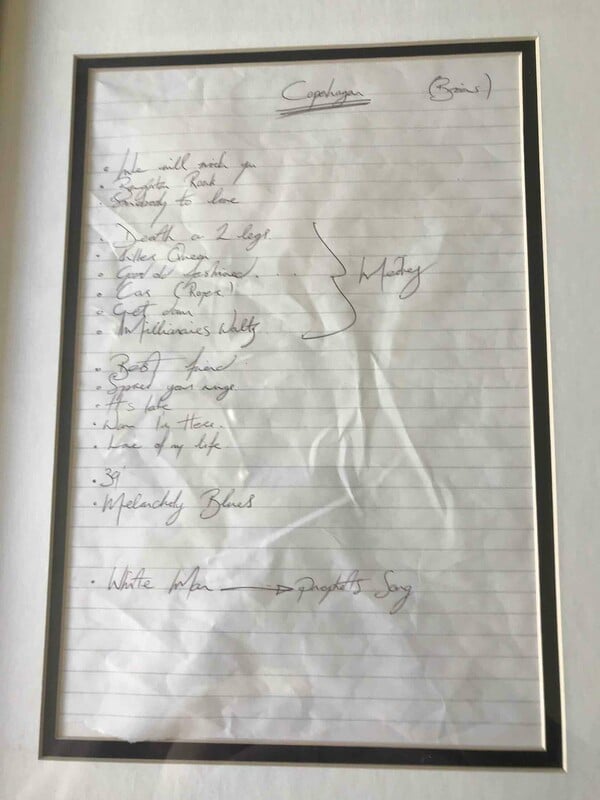 Copenhagen (Basics)
• We will rock you
• Brighton Rock
Somebody to love
• Death on 2 legs.
• Killer Queen
• Good old fashioned. . . .
• Car (Roger)
• Get down
• Millionaires Waltz
Medley
• Best friend
• Spread your wings
• It's late
• Now I'm Here.
• Love of my life
• 39
• Melancholy Blues
• White Man → Prophets Song